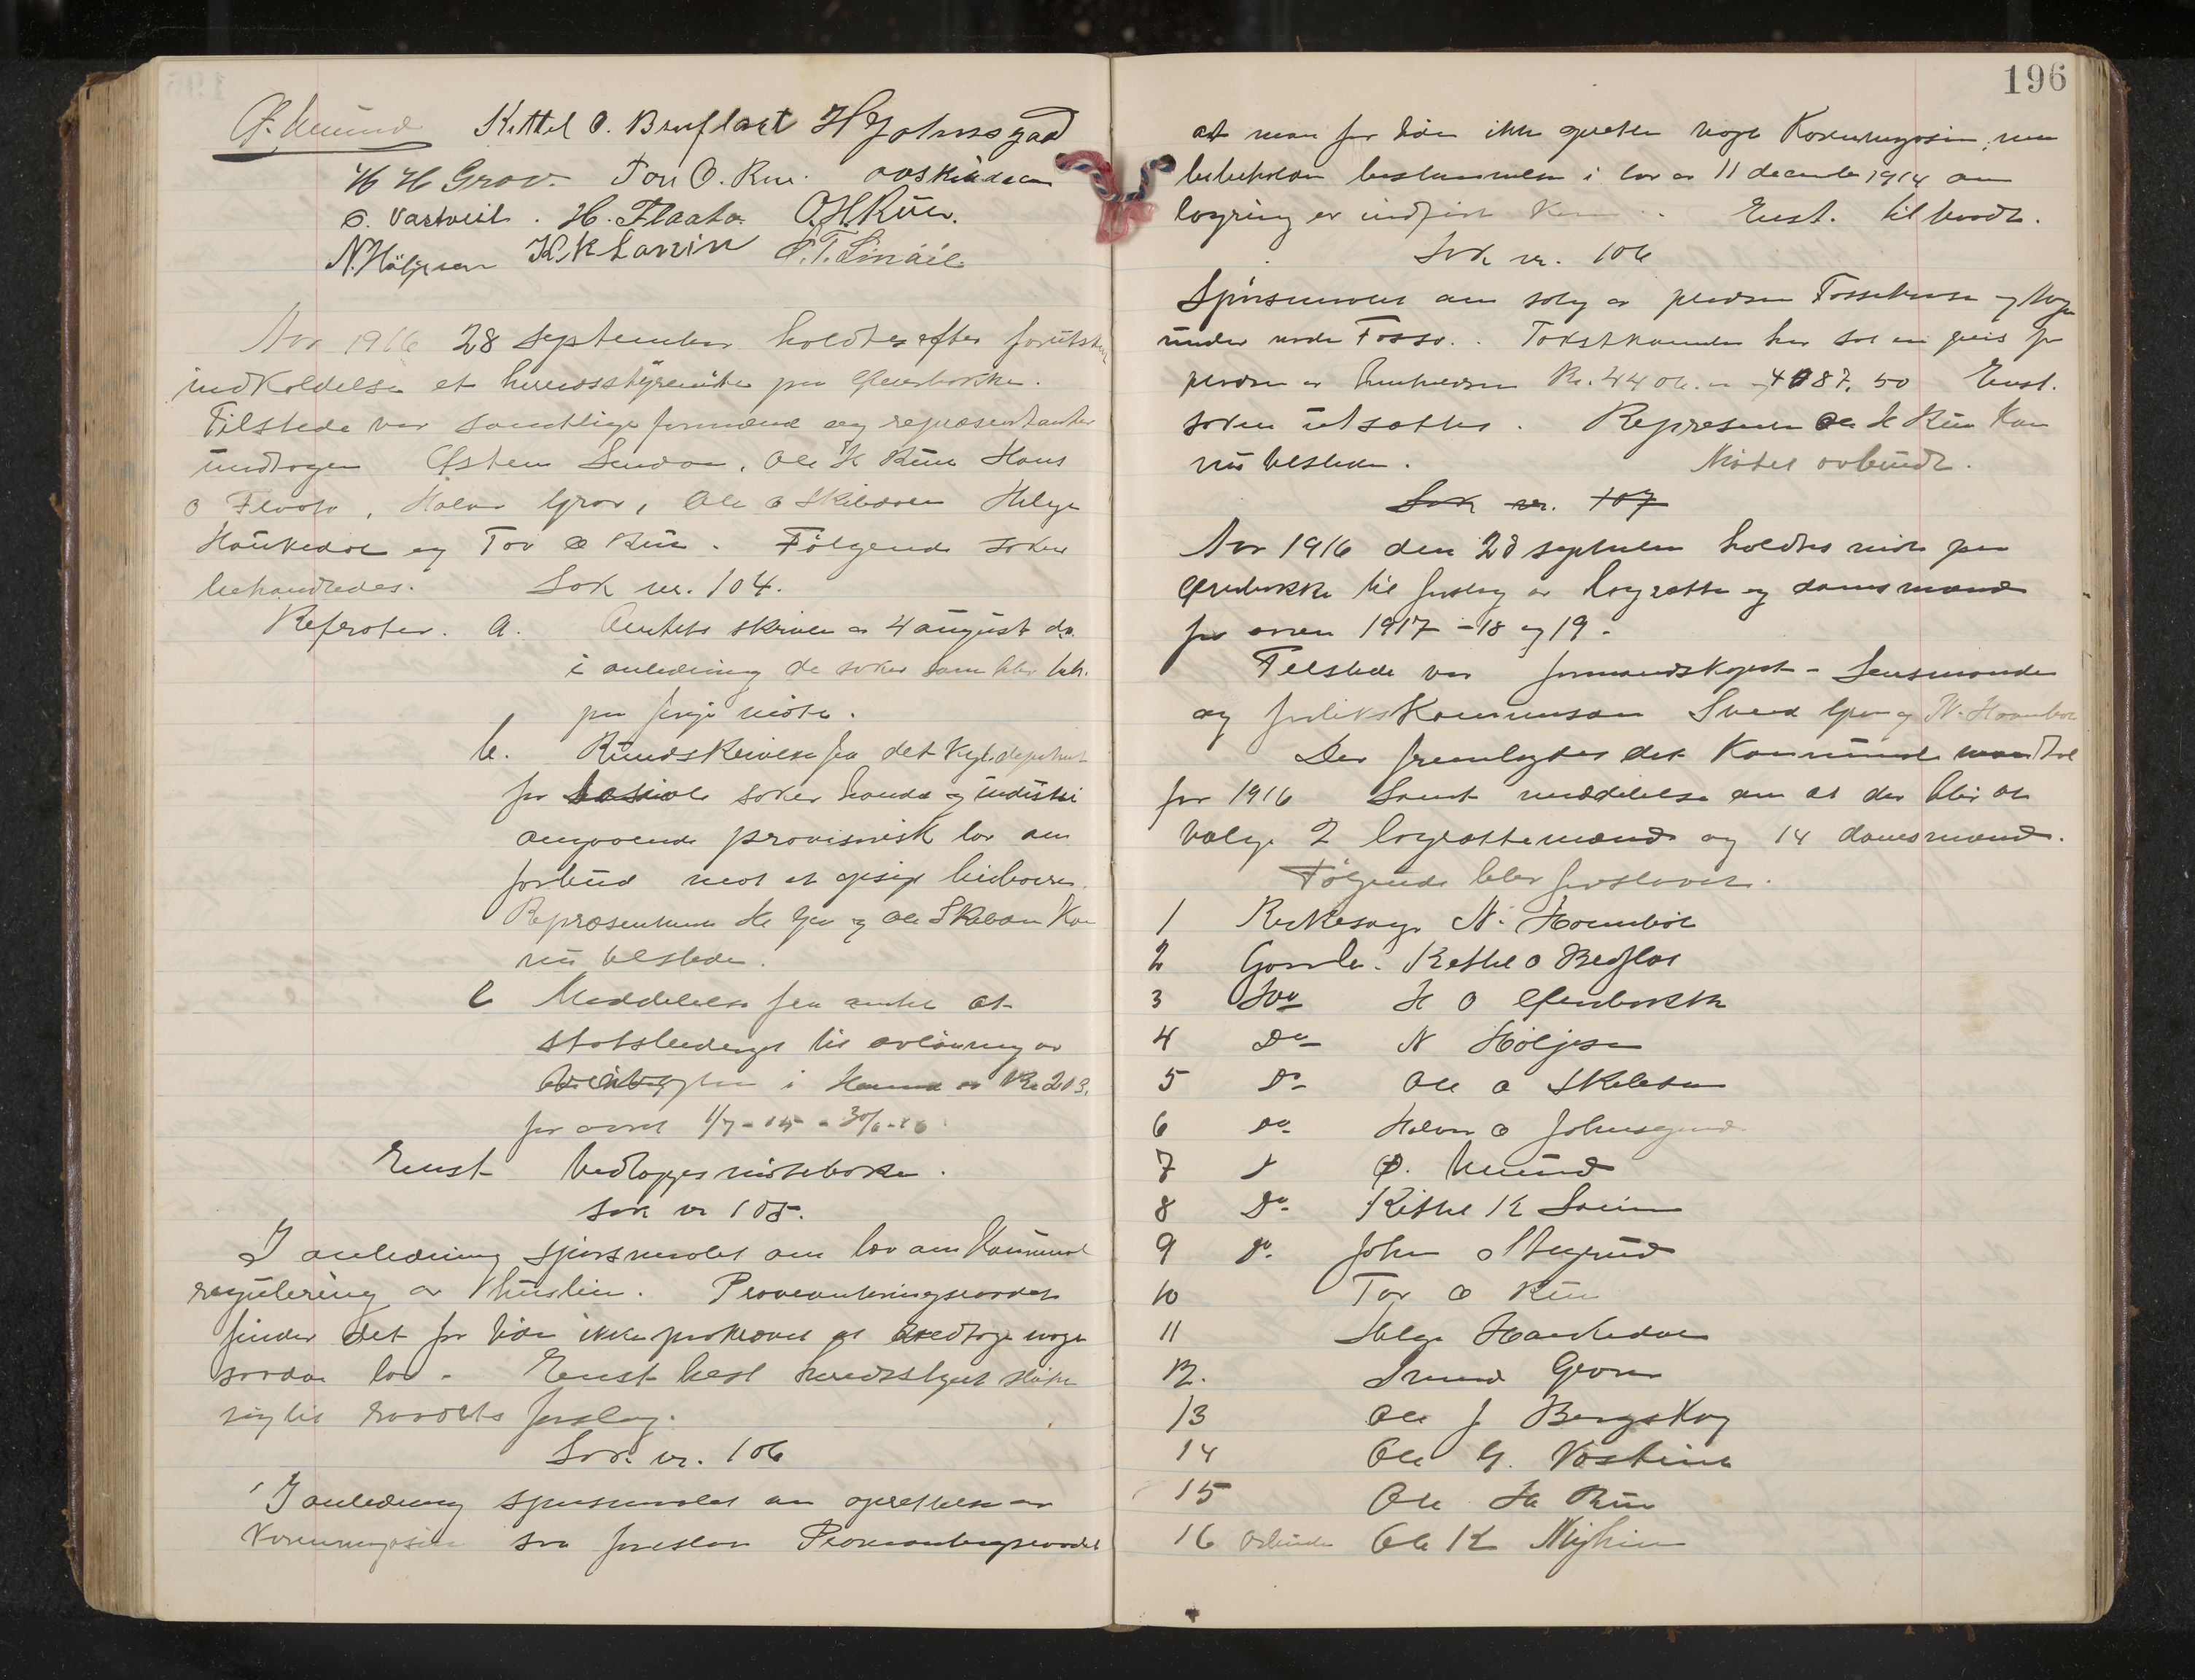 196
Kittel O. Bruflaat H Johnsgaard
H H Grov. Tov O. Rue. O O Skildaen
O. Vastveit. H. Flaata. O. H. Rue.
N. Høljesen K. K. Lavrin
Aar 1916 28 september holdtes efter forutsk
indkoldelse et herredsstyremøte paa
Tilstede var samtlige formænd og repræsentanter
undtagen Østen Ole H Rue Hans
O Flaata, Halvor Grov, Ole O Skilaaen Helge
Haukedal og Tov O Rue. Følgende saker
behandledes. Sak nr. 104.
Referater. a. Amtets skrivelse av 4 august d.a.
i anledning de saker som blev beh.
paa forrige møte.
b. Rundskrivelse fra det Kgl. depart
for sociale saker handel og industri
angaaende provisorisk lov om
forbud mot at opsige
Repræsentanterne og Ole Skilaaen kom
nu tilstede.
c Meddelelse fra amtet at
statsbidraget til avlønning av
i av Kr 203.
for aaret 1/7-15 - 30/6-16
Enst vedtages møteboken.
Sak nr 105.
I anledning spørsmaalet om lov om kommunal
regulering av husleien. Provianteringsraadet
finder det for tiden ikke paakrævet at vedtage nogen
saadan lov. Enst besl herredsstyret slutte
sig til raadets forslag.
Sak nr. 106
I anledning spørsmaalet om oprettelse av
Kornmagasin saa foreslaar Provianteringsraadet
at man for tiden ikke opretter noget Kornmagasin, men
bibeholder bestemmelsen i lov av 11 december 1914 om
lagring av indført Korn. Enst. tilraadt.
Sak nr. 106
Spørsmaalet om salg av pladsen Fossehaugen og
under nordre Fosso. Takstkommissionen har sat en pris for
pladsen av Kr. 4406. 4087,50 Enst.
saken utsattes. Repræsentanten Ole H Rue kom
nu tilstede. Møtet avbrudt.
Sak nr. 107
Aar 1916 den 28 september holdtes møte paa
til forslag av lagrette og domsmænd
for aaren 1917 - 18 og 19.
Tilstede var formandskapet - Lensmanden
og forlikskommissær Svend Grov og N. Haanbøl
Der fremlagdes det kommunale mandtal
for 1916 Samt meddelelse om at der blir at
vælge 2 lagrettemænd og 14 domsmænd.
Følgende blev foreslaaet.
1 N. Haanbøl
2 Gaardbr. Kittel O Bruflat
3 Do H O
4 Do N Høljesen
5 Do Ole O Skilaaen
6 Do Halvor O Johnsgaard
7
8 Do Kittel K Lavrin
9 Do John
10 Tov O Rue
11 Helge Haukedal
12. Svend Grov
13 Ole J Bergskog
14 Ole G. Vastveit
15 Ole H Rue
16 Arbeider Ole K